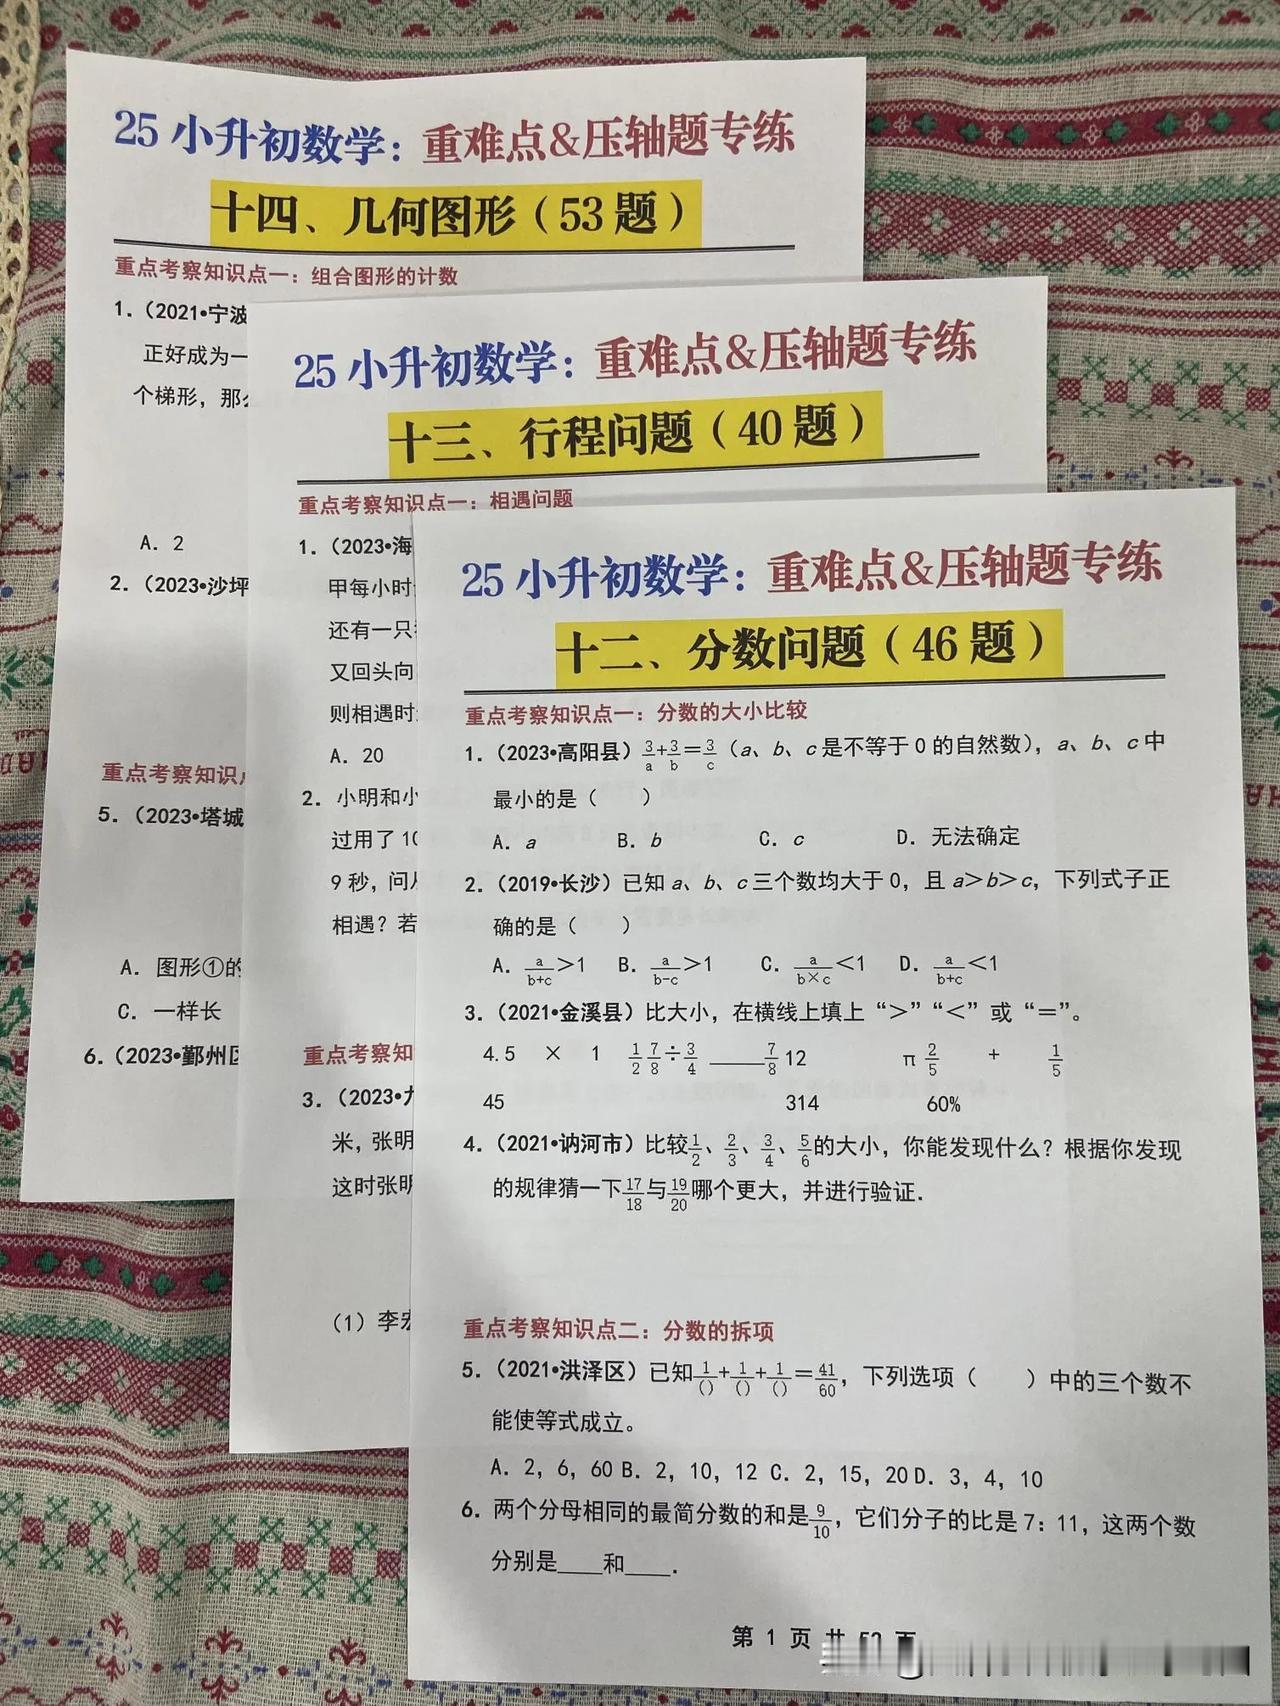 25 小升初数学：重难点&压轴题专练
十四、几何图形（53 题）
重点考察知识点一：组合图形的计数
1.（2021•宁波
正好成为一
个梯形，那
A. 2
2.（2023•沙坪
重点考察知识点
5.（2023•塔城
A. 图形①的
C. 一样长
6.（2023•鄞州区
25 小升初数学：重难点&压轴题专练
十三、行程问题（40 题）
重点考察知识点一：相遇问题
1.（2023•海
甲每小时
还有一只
又回头向
则相遇时
A. 20
2. 小明和小
过用了 10
9 秒，问从
相遇？若
重点考察知
3.（2023•九
米，张明
这时张明
（1）李宏
25 小升初数学：重难点&压轴题专练
十二、分数问题（46 题）
重点考察知识点一：分数的大小比较
1.（2023•高阳县）3/a+3/b=3/c（a、b、c 是不等于 0 的自然数），a、b、c 中
最小的是（  ）
A. a B. b C. c D. 无法确定
2.（2019•长沙）已知 a、b、c 三个数均大于 0，且 a>b>c，下列式子正
确的是（  ）
A. a/(b+c)>1 B. a/(b-c)>1 C. a/(b×c)<1 D. a/(b+c)<1
3.（2021•金溪县）比大小，在横线上填上“>”“<”或“=”。
4.5 × 1 1/2 7/8÷3/4 ____7/8 12 π 2/5 + 1/5
45 314 60%
4.（2021•讷河市）比较1/2、2/3、3/4、5/6的大小，你能发现什么？根据你发现
的规律猜一下17/18与19/20哪个更大，并进行验证.
重点考察知识点二：分数的拆项
5.（2021•洪泽区）已知1/()+1/()+1/()=41/60，下列选项（  ）中的三个数不
能使等式成立。
A. 2，6，60 B. 2，10，12 C. 2，15，20 D. 3，4，10
6. 两个分母相同的最简分数的和是9/10，它们分子的比是 7：11，这两个数
分别是____和____.
第 1 页 共